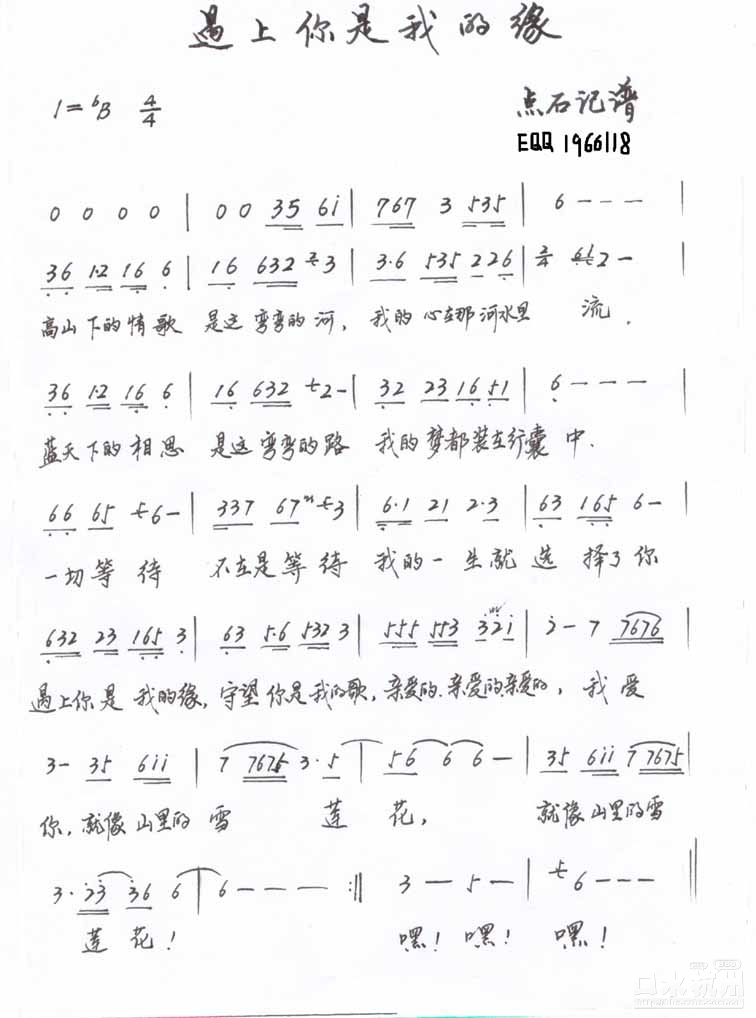 遇上你是我的缘
1=ᵇB 4/4 点石记谱
EQQ 1966118
0 0 0 0 | 0 0 35 6i | 767 3 535 | 6 - - - |
36 1·2 16 6 | 16 632 3 | 3·6 535 226 | 2/4 2 - |
高山下的情歌 是这弯弯的河, 我的心在那河水里 流.
36 1·2 16 6 | 16 632 2 - | 32 23 16 51 | 6 - - - |
蓝天下的相思 是这弯弯的路 我的梦都装在行囊中.
66 65 6 - | 337 67 3 | 6·1 21 2·3 | 63 165 6 - |
一切等待 不在是等待 我的一生就选择了你
632 23 165 3 | 63 5·6 532 3 | 555 553 32i | 2 - 7 7676 |
遇上你是我的缘, 守望你是我的歌, 亲爱的.亲爱的.亲爱的, 我爱
3 - 35 6ii | 7 7675 3·5 | 56 6 6 - | 35 6ii 7 7675 |
你, 就像山里的雪 莲花, 就像山里的雪
3·23 36 6 | 6 - - - :|| 3 — 5 — | 6 - - - ||
莲花! 嘿! 嘿! 嘿!
口水杭州